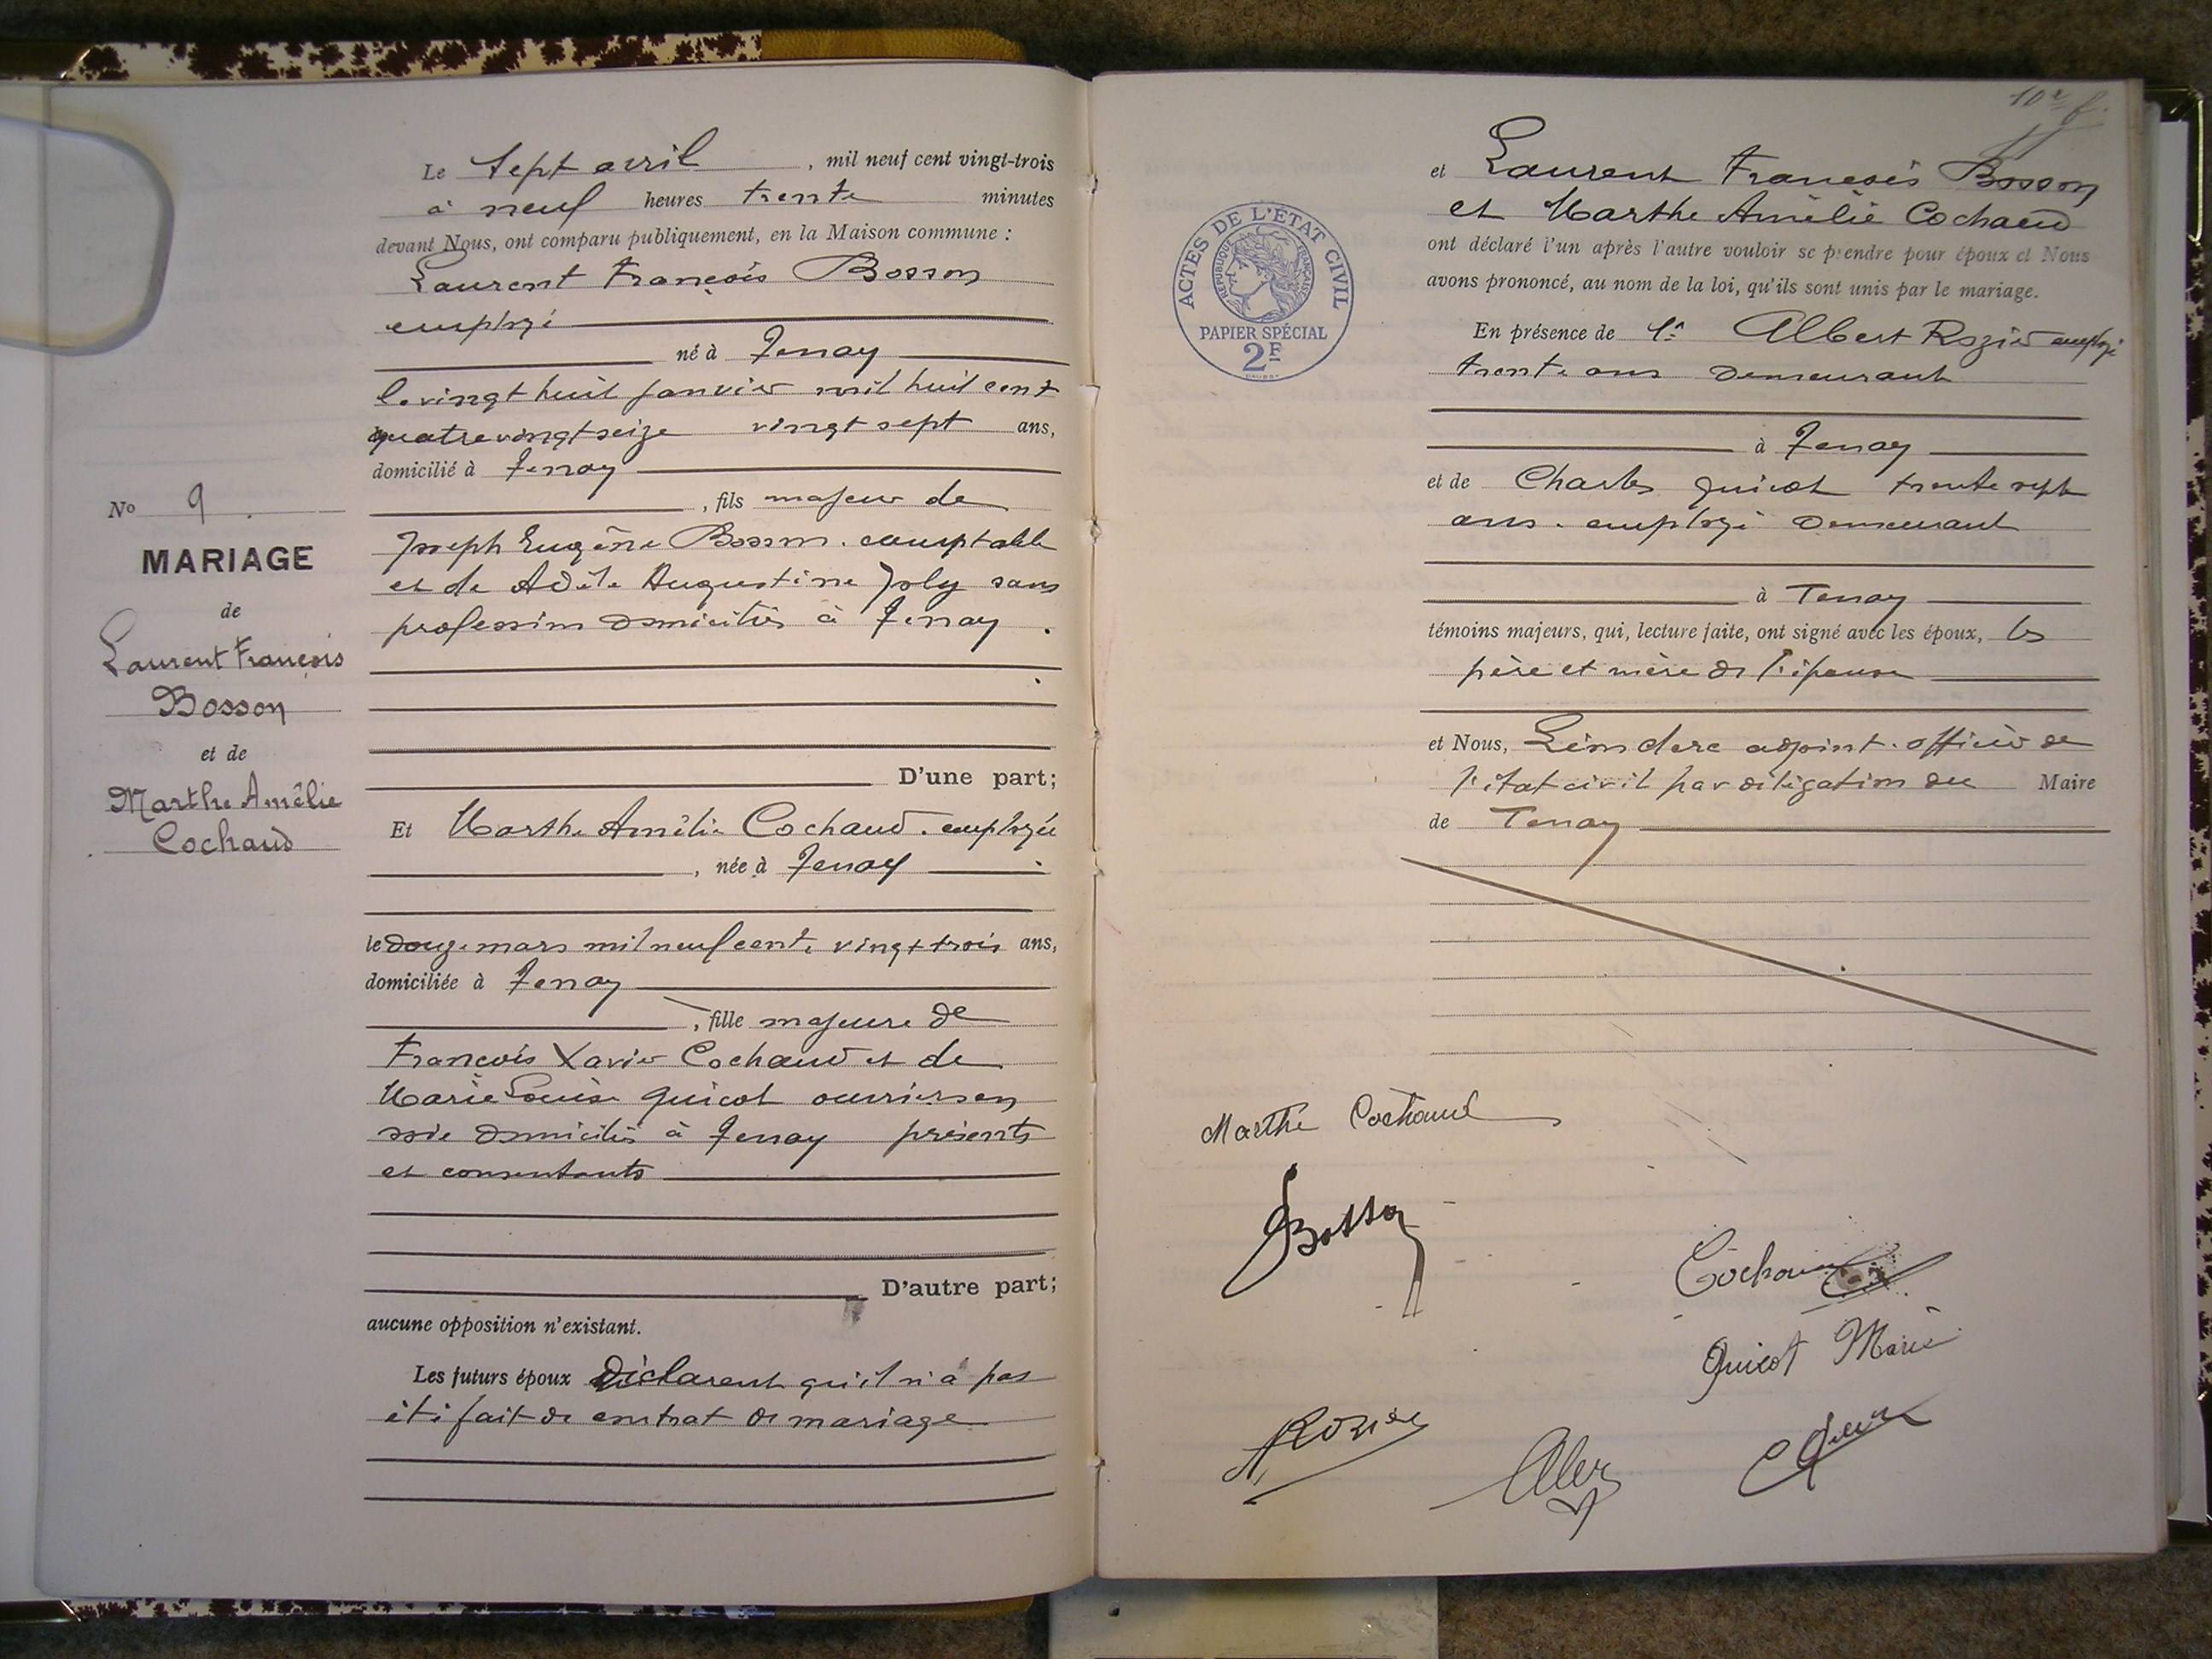 Le sept avril, mil neuf cent vingt-trois
à neuf heures trente minutes
devant Nous, ont comparu publiquement, en la Maison commune :
Laurent François Bosson
employé
né à Tenay
le vingt huit janvier mil huit cent
quatre vingt seize vingt sept ans,
domicilié à Tenay
, fils majeur de
Joseph Eugène Bosson. comptable
et de Adèle Augustine Joly sans
profession domiciliés à Tenay.
D'une part;
No 9.
MARIAGE
de
Laurent François
Bosson
et de
Marthe Amélie
Cochaud
Et Marthe Amélie Cochaud. employée
, née à Tenay
le douze mars mil neuf cent, vingt trois ans,
domiciliée à Tenay
, fille majeure de
François Xavier Cochaud et de
Marie Louise Guicot ouvriers en
soie domiciliés à Tenay présents
et consentants
D'autre part;
aucune opposition n'existant.
Les futurs époux déclarent qu'il n'a pas
été fait de contrat de mariage
et Laurent François Bosson
et Marthe Amélie Cochaud
ont déclaré l'un après l'autre vouloir se prendre pour époux et Nous
avons prononcé, au nom de la loi, qu'ils sont unis par le mariage.
ACTES DE L'ÉTAT CIVIL
RÉPUBLIQUE FRANÇAISE
PAPIER SPÉCIAL
2F
En présence de Albert Rozier employé
trente ans demeurant
à Tenay
et de Charles Guicot trente sept
ans. employé demeurant
à Tenay
témoins majeurs, qui, lecture faite, ont signé avec les époux, les
père et mère de l'épouse
et Nous, adjoint. officier de
l'état civil par délégation du Maire
de Tenay
Marthe Cochaud
Bosson
Cochaud
Guicot Marie
A Rozier